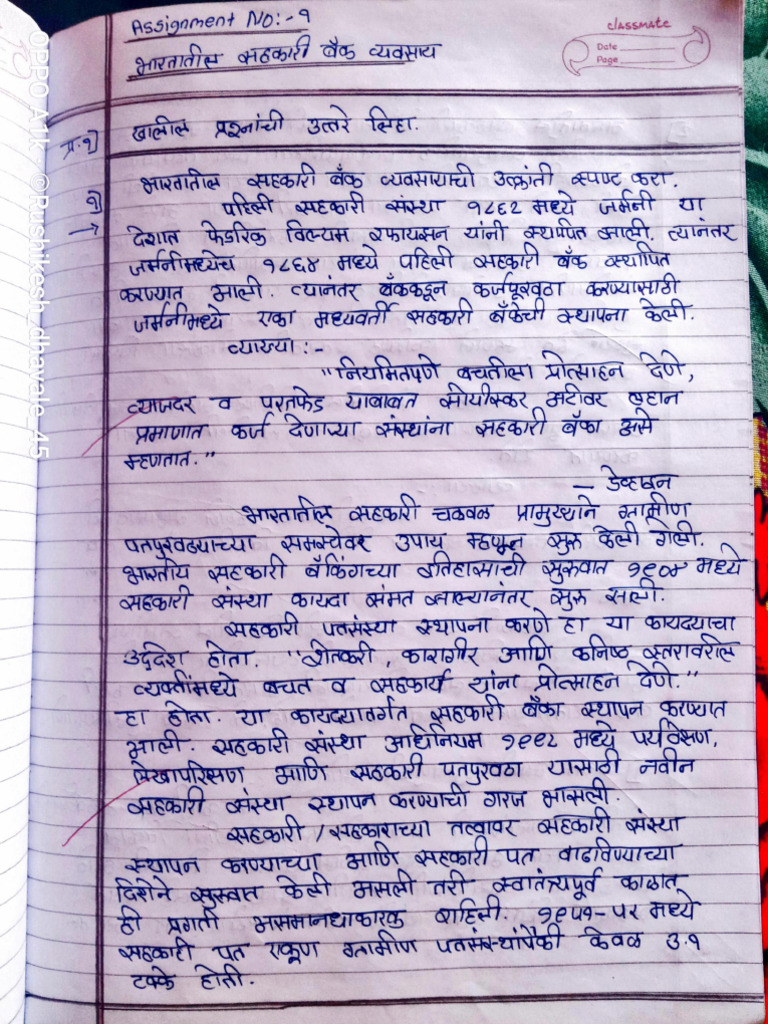 Assignment No:- १
classmate
Date
Page
भारतातील सहकारी बँक व्यवसाय
प्र.१] खालील प्रश्नांची उत्तरे लिहा.
१) भारतातील सहकारी बँक व्यवसायाची उत्क्रांती स्पष्ट करा.
→ पहिली सहकारी संस्था १८६२ मध्ये जर्मनी या
देशात फेडरिक विल्यम रफायसन यांनी स्थापित झाली. त्यानंतर
जर्मनीमध्येच १८६४ मध्ये पहिली सहकारी बँक स्थापित
करण्यात आली. त्यानंतर बँककडून कर्जपूरवठा करण्यासाठी
जर्मनीमध्ये एका मध्यवर्ती सहकारी बँकेची स्थापना केली.
व्याख्या :-
"नियमितपणे बचतीला प्रोत्साहन देणे,
व्याजदर व परतफेड याबाबत सोयीस्कर अटीवर लहान
प्रमाणात कर्ज देणाऱ्या संस्थांना सहकारी बँका असे
म्हणतात."
— डेव्हाइन
भारतातील सहकारी चळवळ प्रामुख्याने ग्रामीण
पतपुरवठ्याच्या समस्येवर उपाय म्हणून सुरु केली गेली.
भारतीय सहकारी बँकिंगच्या इतिहासाची सुरुवात १९०४ मध्ये
सहकारी संस्था कायदा संमत झाल्यानंतर सुरु झाली.
सहकारी पतसंस्था स्थापना करणे हा या कायदयाचा
उद्देश होता. "शेतकरी, कारागीर आणि कनिष्ठ स्तरावरील
व्यक्तींमध्ये बचत व सहकार्य यांना प्रोत्साहन देणे."
हा होता. या कायदयातर्गत सहकारी बँका स्थापन करण्यात
आली. सहकारी संस्था अधिनियम १९१२ मध्ये पर्यवेक्षण,
लेखापरिक्षण आणि सहकारी पतपुरवठा यासाठी नवीन
सहकारी संस्था स्थापन करण्याची गरज भासली.
सहकारी / सहकाराच्या तत्वावर सहकारी संस्था
स्थापन करण्याच्या आणि सहकारी पत वाढविण्याच्या
दिशेने सुरुवात केली असली तरी स्वातंत्र्यपूर्व काळात
ही प्रगती असमानधाकारक राहिली. १९५१-५२ मध्ये
सहकारी पत एकूण ग्रामीण पतसंस्थांपैकी केवळ ३.१
टक्के होती.
OPPO A1k ©Rushikesh_dhavale_45